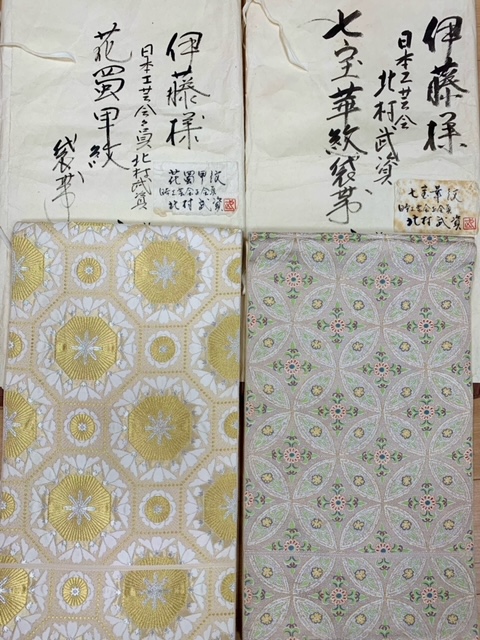 伊藤様
日本工芸会
北村武資
七宝華紋袋帯
七宝華紋
日本工芸会正会員
北村武資
伊藤様
日本工芸会会員 北村武資
花蜀甲紋
袋帯
花蜀甲紋
日本工芸会正会員
北村武資